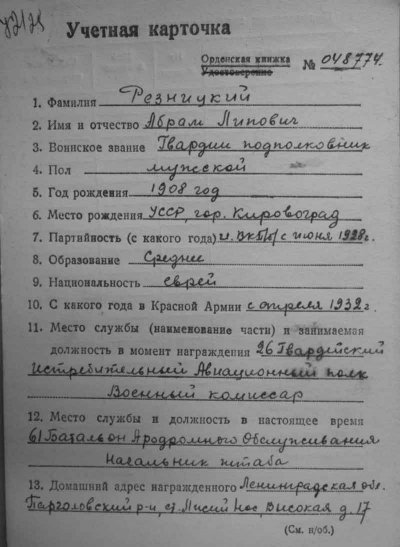 Учетная карточка
Орденская книжка
Удостоверение
№ 048774
1. Фамилия Резницкий
2. Имя и отчество Абрам Липович
3. Воинское звание Гвардии подполковник
4. Пол мужской
5. Год рождения 1908 год
6. Место рождения УССР, гор. Кировоград
7. Партийность (с какого года) ч. ВКП/б/ с июня 1928 г.
8. Образование Среднее
9. Национальность еврей
10. С какого года в Красной Армии с апреля 1932 г.
11. Место службы (наименование части) и занимаемая
должность в момент награждения 26 Гвардейский
Истребительный Авиационный полк
Военный комиссар
12. Место службы и должность в настоящее время
61 Батальон Ародромного Обслуживания
Начальник штаба
13. Домашний адрес награжденного Ленинградская обл.
Парголовский р-н, ст. Лисий Нос, Высокая д. 17
(См. н/об.)